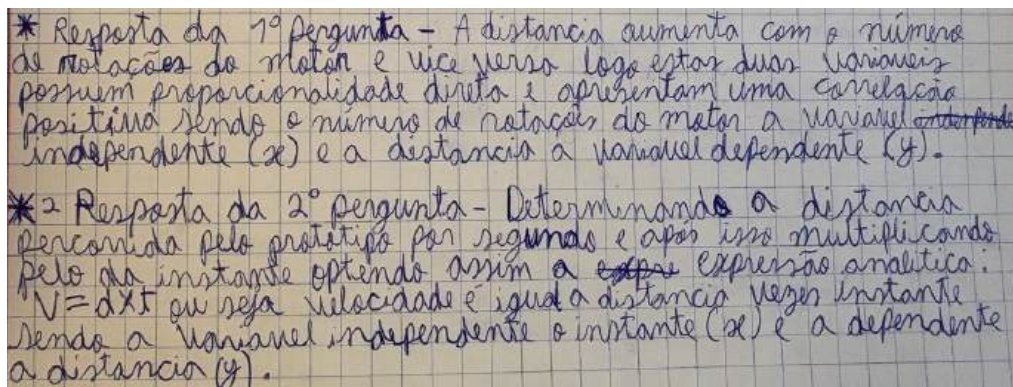 * Resposta da 1º pergunta - A distancia aumenta com o número
de rotações do motor e vice versa logo estas duas variaveis
possuem proporcionalidade direta e apresentam uma correlação
positiva sendo o número de rotações do motor a variavel
independente (x) e a distancia a variavel dependente (y).
*2 Resposta da 2º pergunta - Determinando a distancia
percorrida pelo protótipo por segundo e apos isso multiplicando
pelo da instante optendo assim a expressão analitica:
V=dxt ou seja velocidade é igual a distancia vezes instante
sendo a variavel independente o instante (x) e a dependente
a distancia (y).